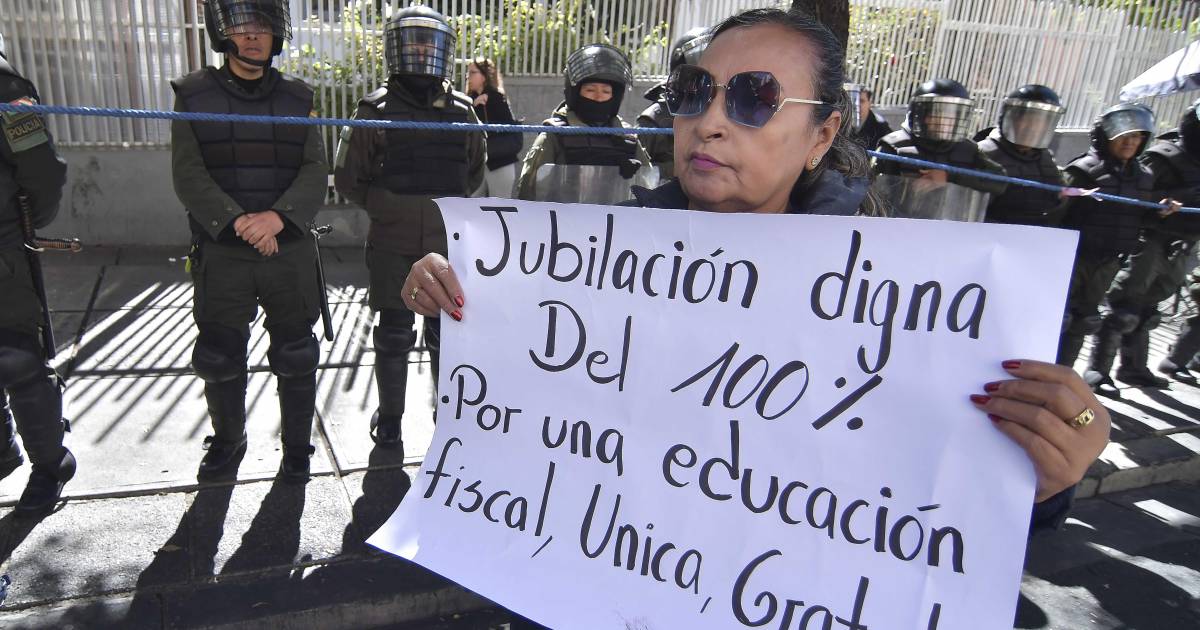 POLICIA
· Jubilación digna
Del 100%
· Por una educación
fiscal, Unica,